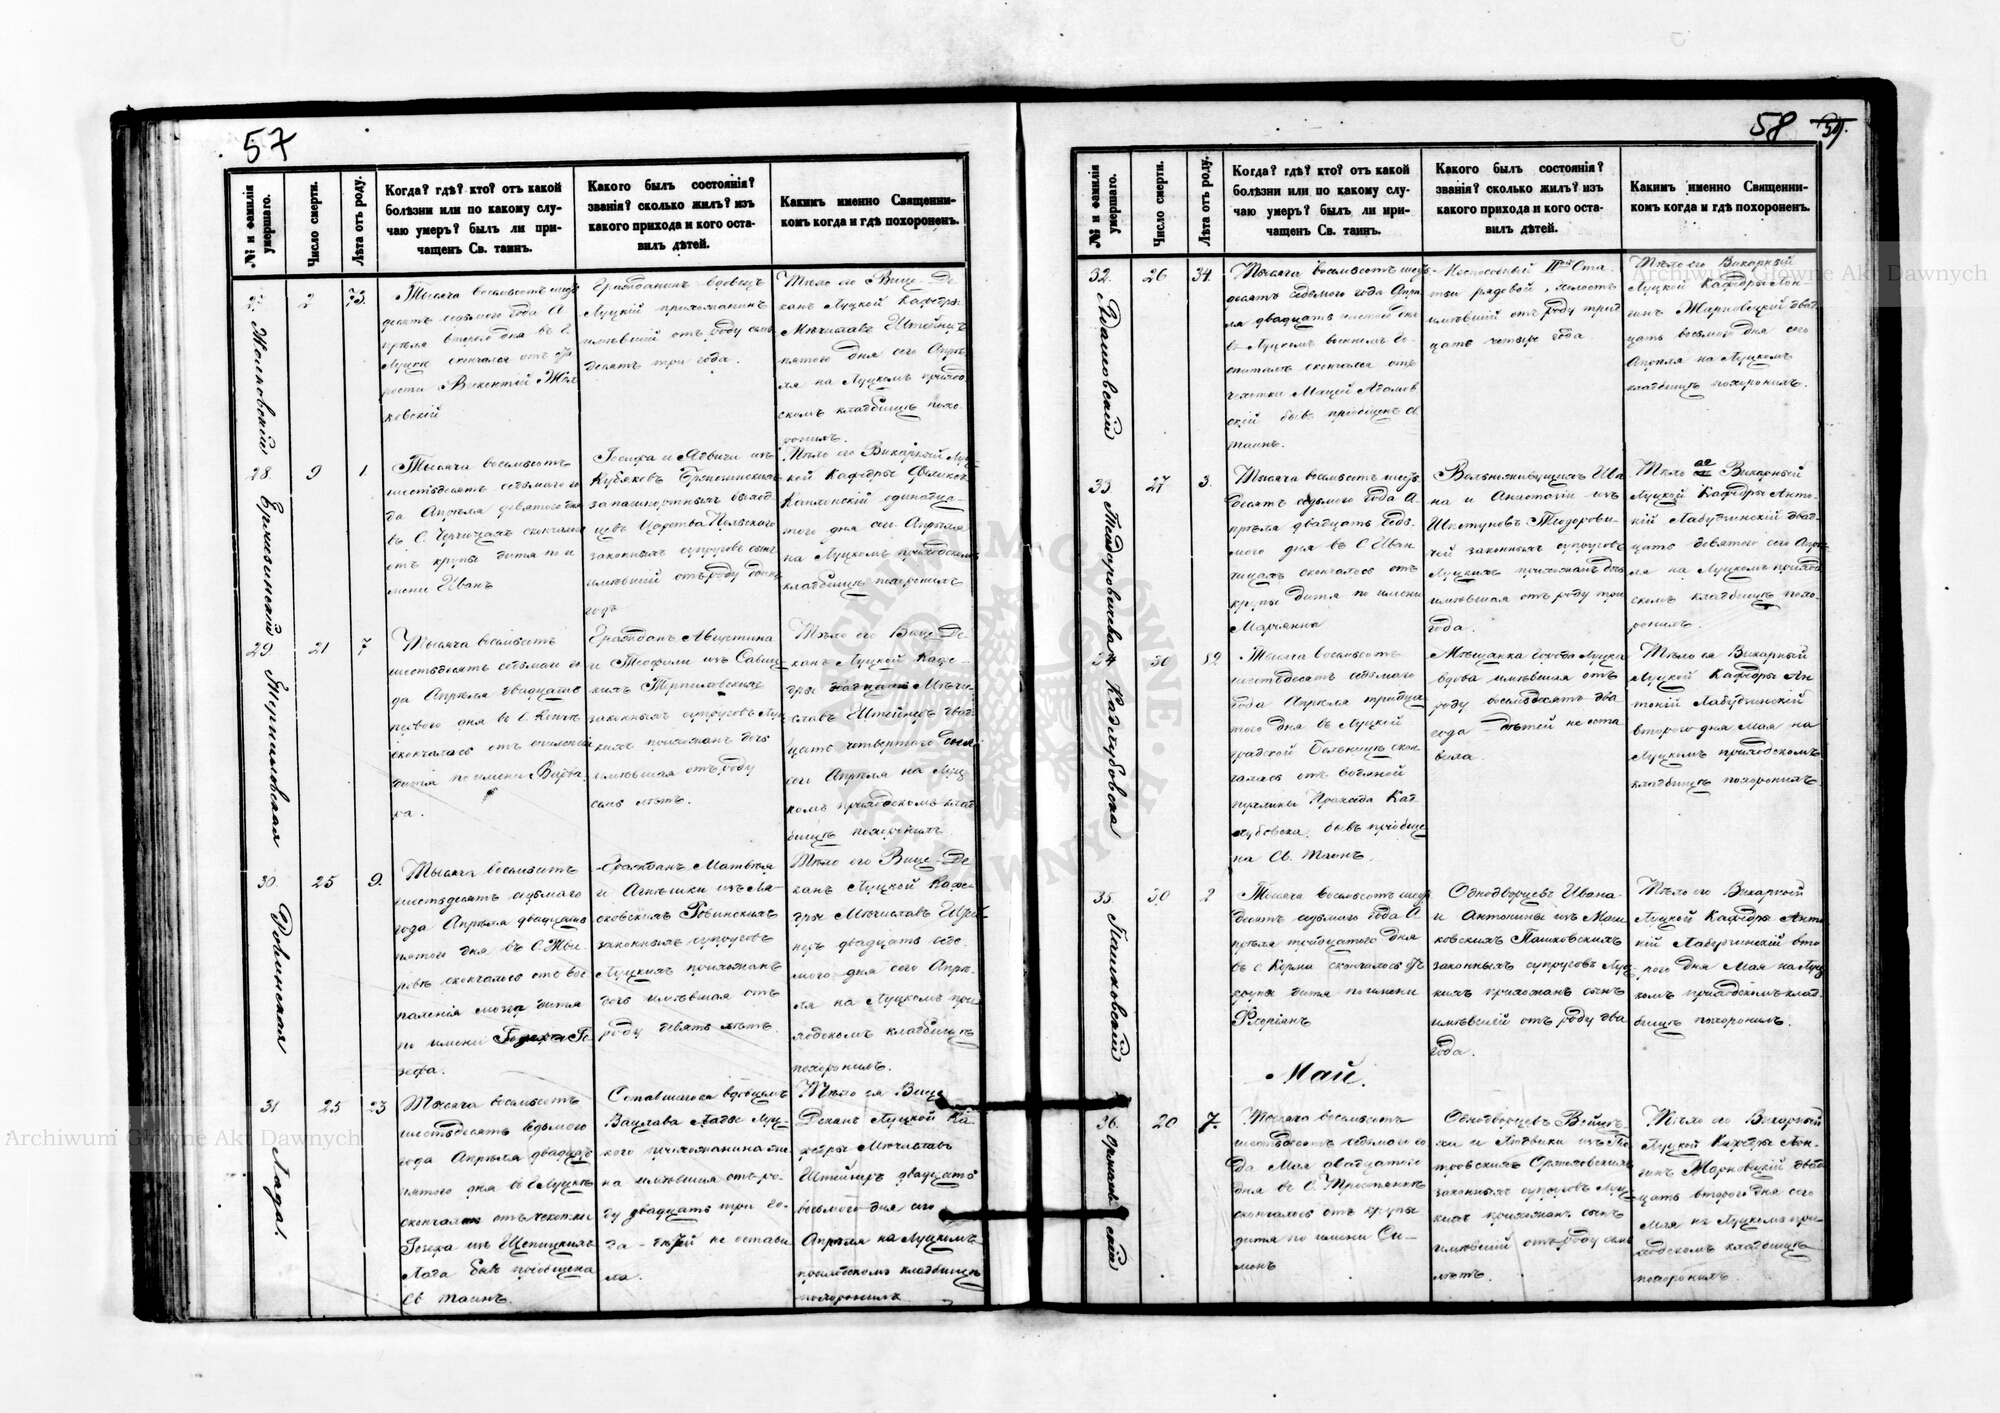 57
№ и фамилія умершаго.
Число смерти.
Лѣта отъ роду.
Когда? гдѣ? кто? отъ какой
болѣзни или по какому слу-
чаю умеръ? былъ ли при-
чащенъ Св. таинъ.
Какого былъ состоянія?
званія? сколько жилъ? изъ
какого прихода и кого оста-
вилъ дѣтей.
Какимъ именно Священни-
комъ когда и гдѣ похороненъ.
27.
2
73.
Тысяча восемьсотъ шесть
десятъ седьмого года А
прѣля второго дня въ г.
Луцкѣ скончался отъ ста
рости Викентій Жол
ковскій
Гражданинъ вдовецъ
Луцкій прихожанинъ
имѣвшій отъ роду семь
десятъ три года.
Тѣло его Вице-Де
канъ Луцкой Кафедры
Мѣчиславъ Штейнеръ
пятого дня сего Апрѣ
ля на Луцкомъ приход
скомъ кладбищѣ похо
ронилъ.
28
9
1.
Тысяча восемьсотъ
шестьдесятъ седьмаго го
да Апрѣля девятого дня
въ с. скончалось
отъ крупы дитя по и
мени Иванъ
законныхъ супруговъ сынъ
имѣвшій отъ роду одинъ
годъ
Тѣло его Викарный Луц
кой Кафедры Феликсъ
одинадца
того дня сего Апрѣля
на Луцкомъ приходскомъ
кладбищѣ похоронилъ
29
21
7
Тысяча восемьсотъ
шестьдесятъ седьмаго го
да Апрѣля двадцать
перваго дня въ с.
скончалась отъ
дитя по имени Варва
ра.
Гражданъ Августина
и Теофили изъ Савиц
кихъ Терпиловскихъ
законныхъ супруговъ Луц
кихъ прихожанъ дочь
имѣвшая отъ роду
семь лѣтъ.
Тѣло его Вице-Де
канъ Луцкой Кафе
дры Мѣчи
славъ Штейнеръ двад
цать четвертого дня
сего Апрѣля на Луц
комъ приходскомъ клад
бищѣ похоронилъ.
30.
25
9.
Тысяча восемьсотъ
шестьдесятъ седьмаго
года Апрѣля двадцать
пятого дня въ с.
скончалось отъ вос
паленія мозга дитя
по имени Іо
зефа.
Гражданъ Матвѣя
и Агнѣшки изъ
законныхъ супруговъ
Луцкихъ прихожанъ
дочь имѣвшая отъ
роду девять лѣтъ.
Тѣло его Вице-Де
канъ Луцкой Кафе
дры Мѣчиславъ Штей
неръ двадцать седь
мого дня сего Апрѣ
ля на Луцкомъ при
ходскомъ кладбищѣ
похоронилъ.
31
25
23
Лада.
Тысяча восемьсотъ
шестьдесятъ седьмого
года Апрѣля двадцать
пятого дня въ г. Луцкѣ
скончалась отъ чахотки
изъ Щепицкихъ
Лада бывъ пріобщена
Св. таинъ.
Оставшагося вдовцемъ
Вацлава Лады Луц
кого прихожанина же
на имѣвшая отъ ро
ду двадцать три го
да - дѣтей не остави
ла.
Тѣло ея Вице
Деканъ Луцкой Ка
федры Мѣчиславъ
Штейнеръ двадцать
восьмого дня сего
Апрѣля на Луцкомъ
приходскомъ кладбищѣ
похоронилъ
58
59.
№ и фамилія умершаго.
Число смерти.
Лѣта отъ роду.
Когда? гдѣ? кто? отъ какой
болѣзни или по какому слу-
чаю умеръ? былъ ли при-
чащенъ Св. таинъ.
Какого былъ состоянія?
званія? сколько жилъ? изъ
какого прихода и кого оста-
вилъ дѣтей.
Какимъ именно Священни-
комъ когда и гдѣ похороненъ.
32.
26
34.
Адамовскій
Тысяча восемьсотъ шесть
десятъ седьмого года Апрѣ
ля двадцать шестого дня
въ Луцкомъ военномъ го
спиталѣ скончался отъ
чахотки Мацей Адамов
скій бывъ пріобщенъ св.
таинъ.
Неспособный IIой Ста
тьи рядовой, холостъ
имѣвшій отъ роду трид
цать четыре года
Тѣло его Викарный
Луцкой Кафедры Лон
гинъ Жарновецкій двад
цать восьмого дня сего
Апрѣля на Луцкомъ
кладбищѣ похоронилъ.
33.
27
3.
Теодоровичева
Тысяча восемьсотъ шесть
десятъ седьмого года А
прѣля двадцать седь
мого дня въ с. Иван
чицахъ скончалось отъ
крупы дитя по имени
Марьянна
Вольноживущихъ Ива
на и Анастазіи изъ
Теодорови
чей законныхъ супруговъ
Луцкихъ прихожанъ дочь
имѣвшая отъ роду три
года.
Тѣло ее Викарный
Луцкой Кафедры Анто
ній Лабудзинскій двад
цать девятого сего Апрѣ
ля на Луцкомъ приход
скомъ кладбищѣ похо
ронилъ.
34
30
82
Кадлубовска
Тысяча восемьсотъ
шестьдесятъ седьмого
года Апрѣля тридца
того дня въ Луцкой
градской больницѣ скон
чалась отъ водяной
пухлины Кад
лубовска, бывъ пріобще
на Св. Таинъ.
Мѣщанка города Луцка
вдова имѣвшая отъ
роду восемьдесятъ два
года - дѣтей не оста
вила.
Тѣло ея Викарный
Луцкой Кафедры Ан
тоній Лабудзинскій
второго дня Мая на
Луцкомъ приходскомъ
кладбищѣ похоронилъ.
35.
30
2
Пашковскій
Тысяча восемьсотъ шесть
десятъ седьмого года А
прѣля тридцатого дня
въ с. Корша скончалось отъ
крупы дитя по имени
Флоріянъ
Однодворцевъ Ивана
и Антонины изъ
Пашковскихъ
законныхъ супруговъ Луц
кихъ прихожанъ сынъ
имѣвшій отъ роду два
года.
Тѣло его Викарный
Луцкой Кафедры Анто
ній Лабудзинскій вто
рого дня Мая на Луц
комъ приходскомъ клад
бищѣ похоронилъ.
Май.
36.
20
7.
Тысяча восемьсотъ
шестьдесятъ седьмаго го
да Мая двадцатого
дня въ с. Тростянкѣ
скончалось отъ крупы
дитя по имени Си
монъ
Однодворцевъ Войцѣ
хи и Людвики изъ
законныхъ супруговъ Луц
кихъ прихожанъ сынъ
имѣвшій отъ роду семь
лѣтъ.
Тѣло его Викарный
Луцкой Кафедры Лон
гинъ Жарновецкій двад
цать второго дня сего
Мая на Луцкомъ при
ходскомъ кладбищѣ
похоронилъ.
Archiwum Główne Akt Dawnych
Archiwum Główne Akt Dawnych
ARCHIWUM GŁÓWNE AKT DAWNYCH